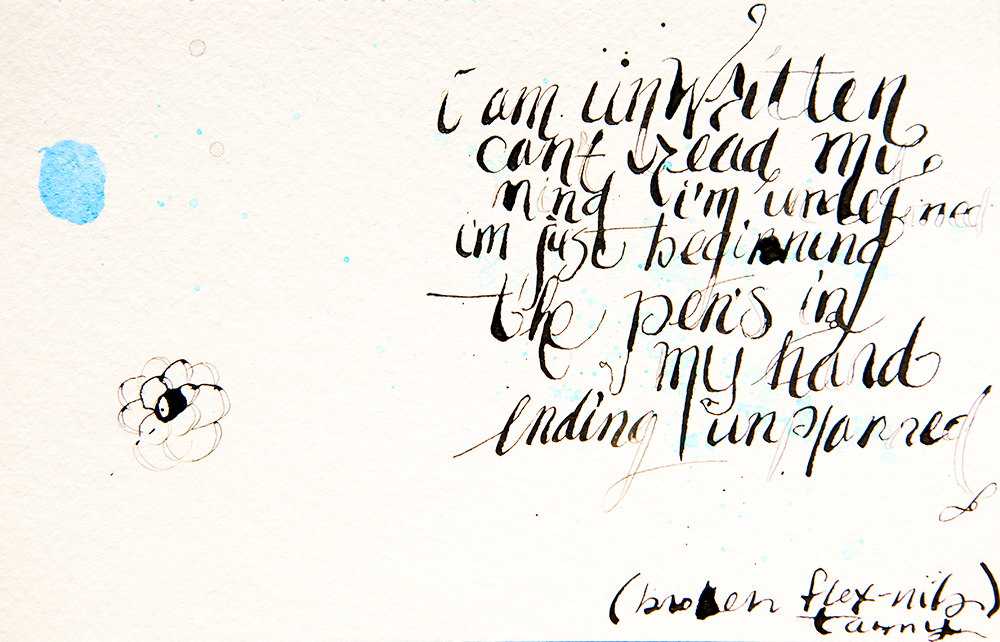 i am unwritten
can't read my
mind i'm undefined
i'm just beginning
the pen's in
my hand
ending unplanned
(broken flex-nib)